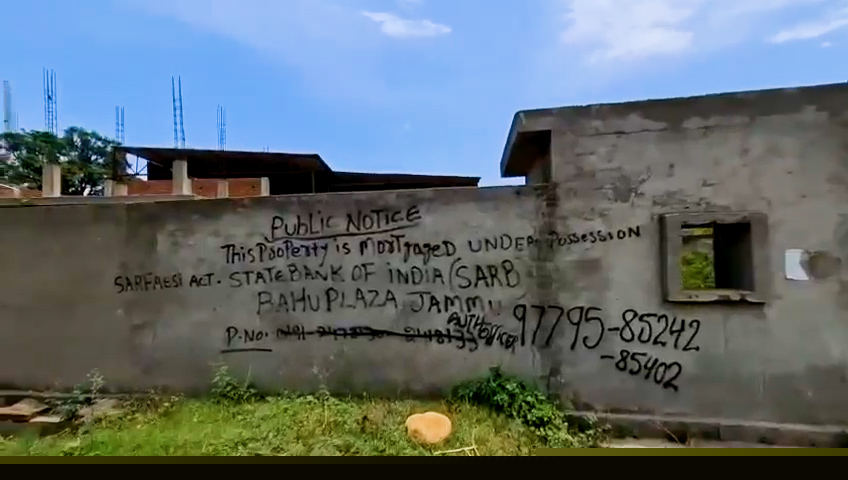 PUBLIC NOTICE
This PROPERTY is MORTGAGED UNDER POSSESSION
SARFAESI ACT. STATE BANK OF INDIA (SARB
BAHU PLAZA JAMMU
AUTH OFFICER 97795-85242
P.NO.
-85402